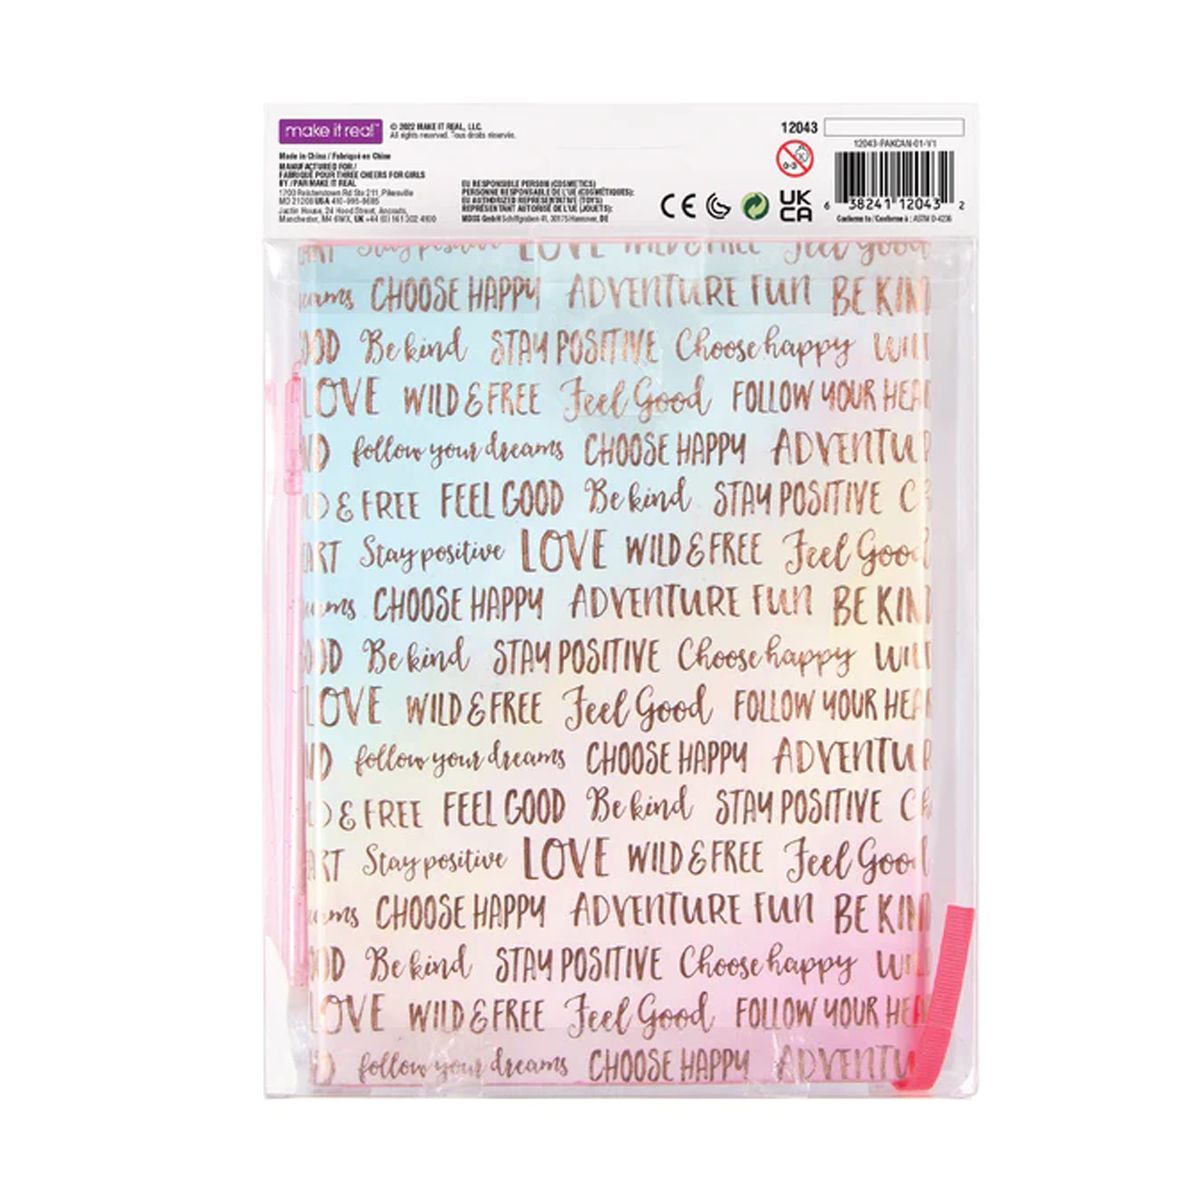 make it real™
© 2022 MAKE IT REAL, LLC.
All rights reserved. Tous droits réservés.
Made in China / Fabriqué en Chine
MANUFACTURED FOR /
FABRIQUÉ POUR THREE CHEERS FOR GIRLS
BY / PAR MAKE IT REAL
1700 Reisterstown Rd Ste 211, Pikesville
MD 21208 USA
Manchester, UK
EU RESPONSIBLE PERSON (COSMETICS)
PERSONNE RESPONSABLE DE L'UE (COSMÉTIQUES):
EU AUTHORIZED REPRESENTATIVE (TOYS)
REPRÉSENTANT AUTORISÉ DE L'UE (JOUETS):
12043
12043-PAKCAN-01-V1
0-3
CE
UK
CA
6 38241 12043 2
Conforms to / Conforme à : ASTM D-4236
ART Stay positive LOVE WILD & FREE Feel Good
CHOOSE HAPPY ADVENTURE FUN BE KIN
OOD Be kind STAY POSITIVE Choose happy WIL
LOVE WILD & FREE Feel Good FOLLOW YOUR HEA
ND follow your dreams CHOOSE HAPPY ADVENTU
LD & FREE FEEL GOOD Be kind STAY POSITIVE C
ART Stay positive LOVE WILD & FREE Feel Good
CHOOSE HAPPY ADVENTURE FUN BE KIN
OOD Be kind STAY POSITIVE Choose happy WIL
LOVE WILD & FREE Feel Good FOLLOW YOUR HEA
ND follow your dreams CHOOSE HAPPY ADVENTU
D & FREE FEEL GOOD Be kind STAY POSITIVE C
ART Stay positive LOVE WILD & FREE Feel Good
CHOOSE HAPPY ADVENTURE FUN BE KIN
OOD Be kind STAY POSITIVE Choose happy WI
LOVE WILD & FREE Feel Good FOLLOW YOUR HEA
follow your dreams CHOOSE HAPPY ADVENTU